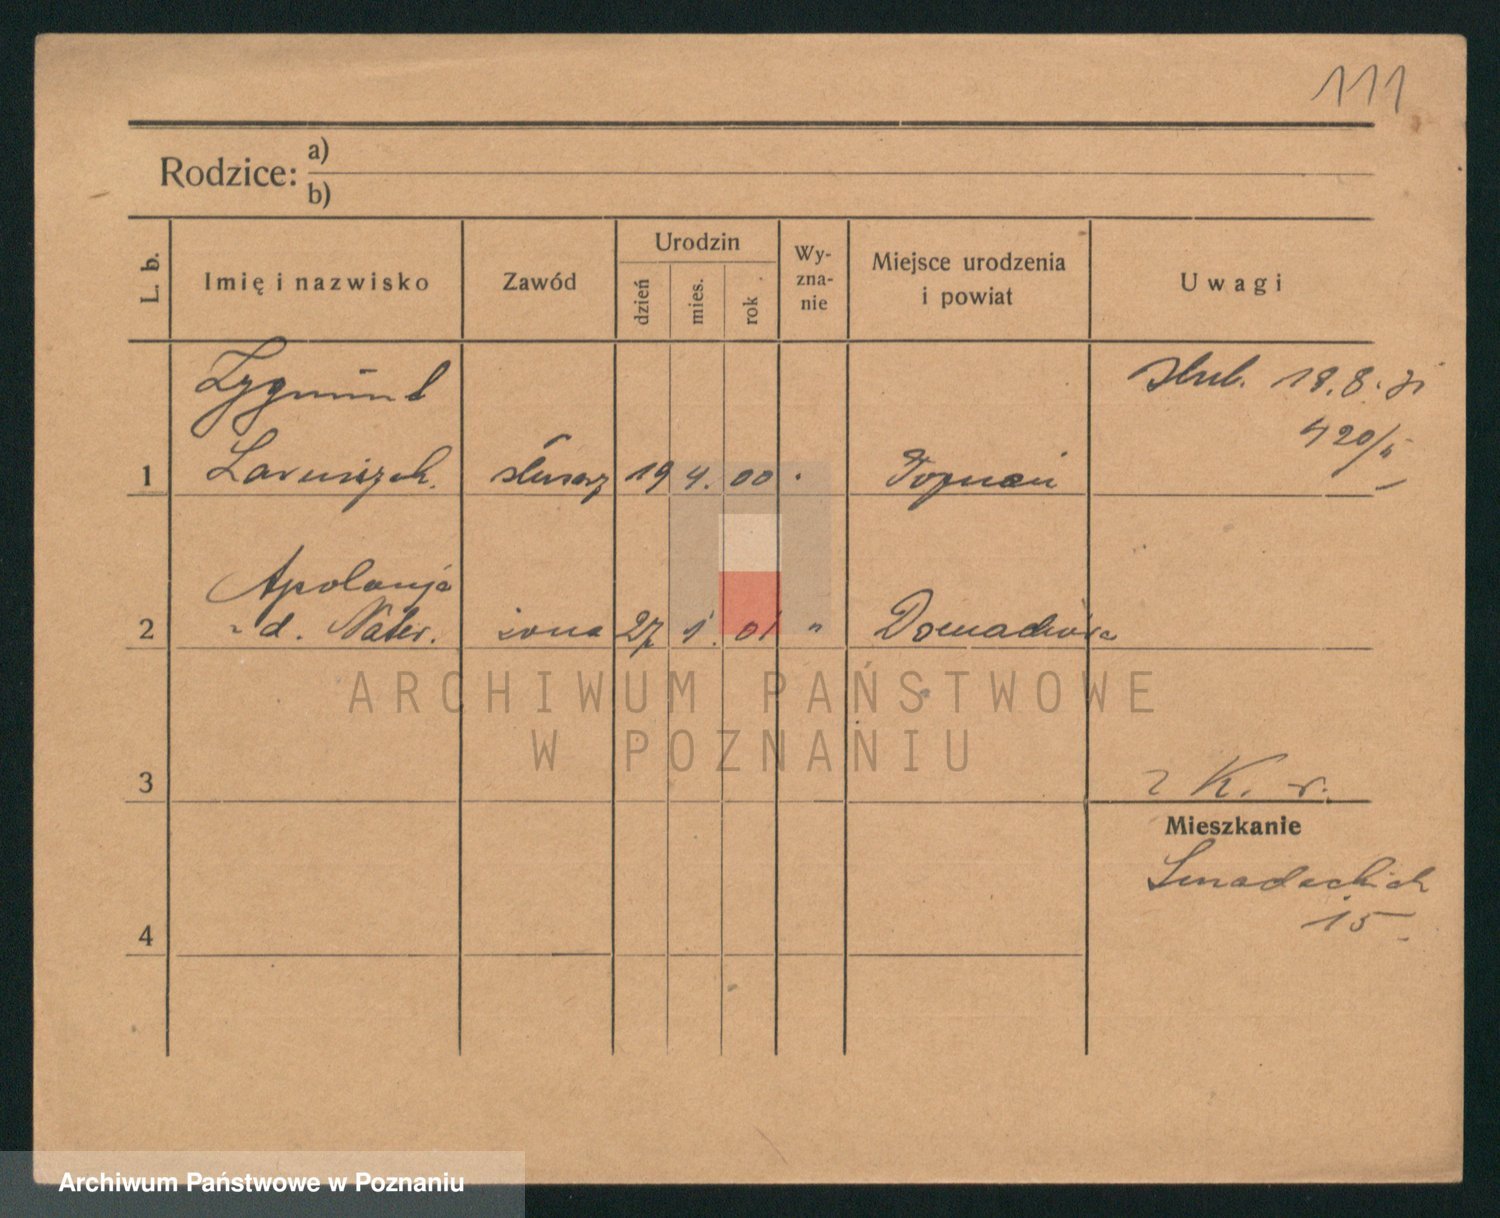 111
Rodzice:
a)
b)
L. b.
Imię i nazwisko
Zawód
Urodzin
dzień
mies.
rok
Wy-
zna-
nie
Miejsce urodzenia
i powiat
Uwagi
Zygmunt
ślub. 18.8.31
420/
1 ślusarz 19 4. 00 Poznań
Apolonja
2 " d. żona 27 1. 01 "
ARCHIWUM PAŃSTWOWE
W POZNANIU
3
z K. r.
Mieszkanie
Śniadeckich
15
4
Archiwum Państwowe w Poznaniu